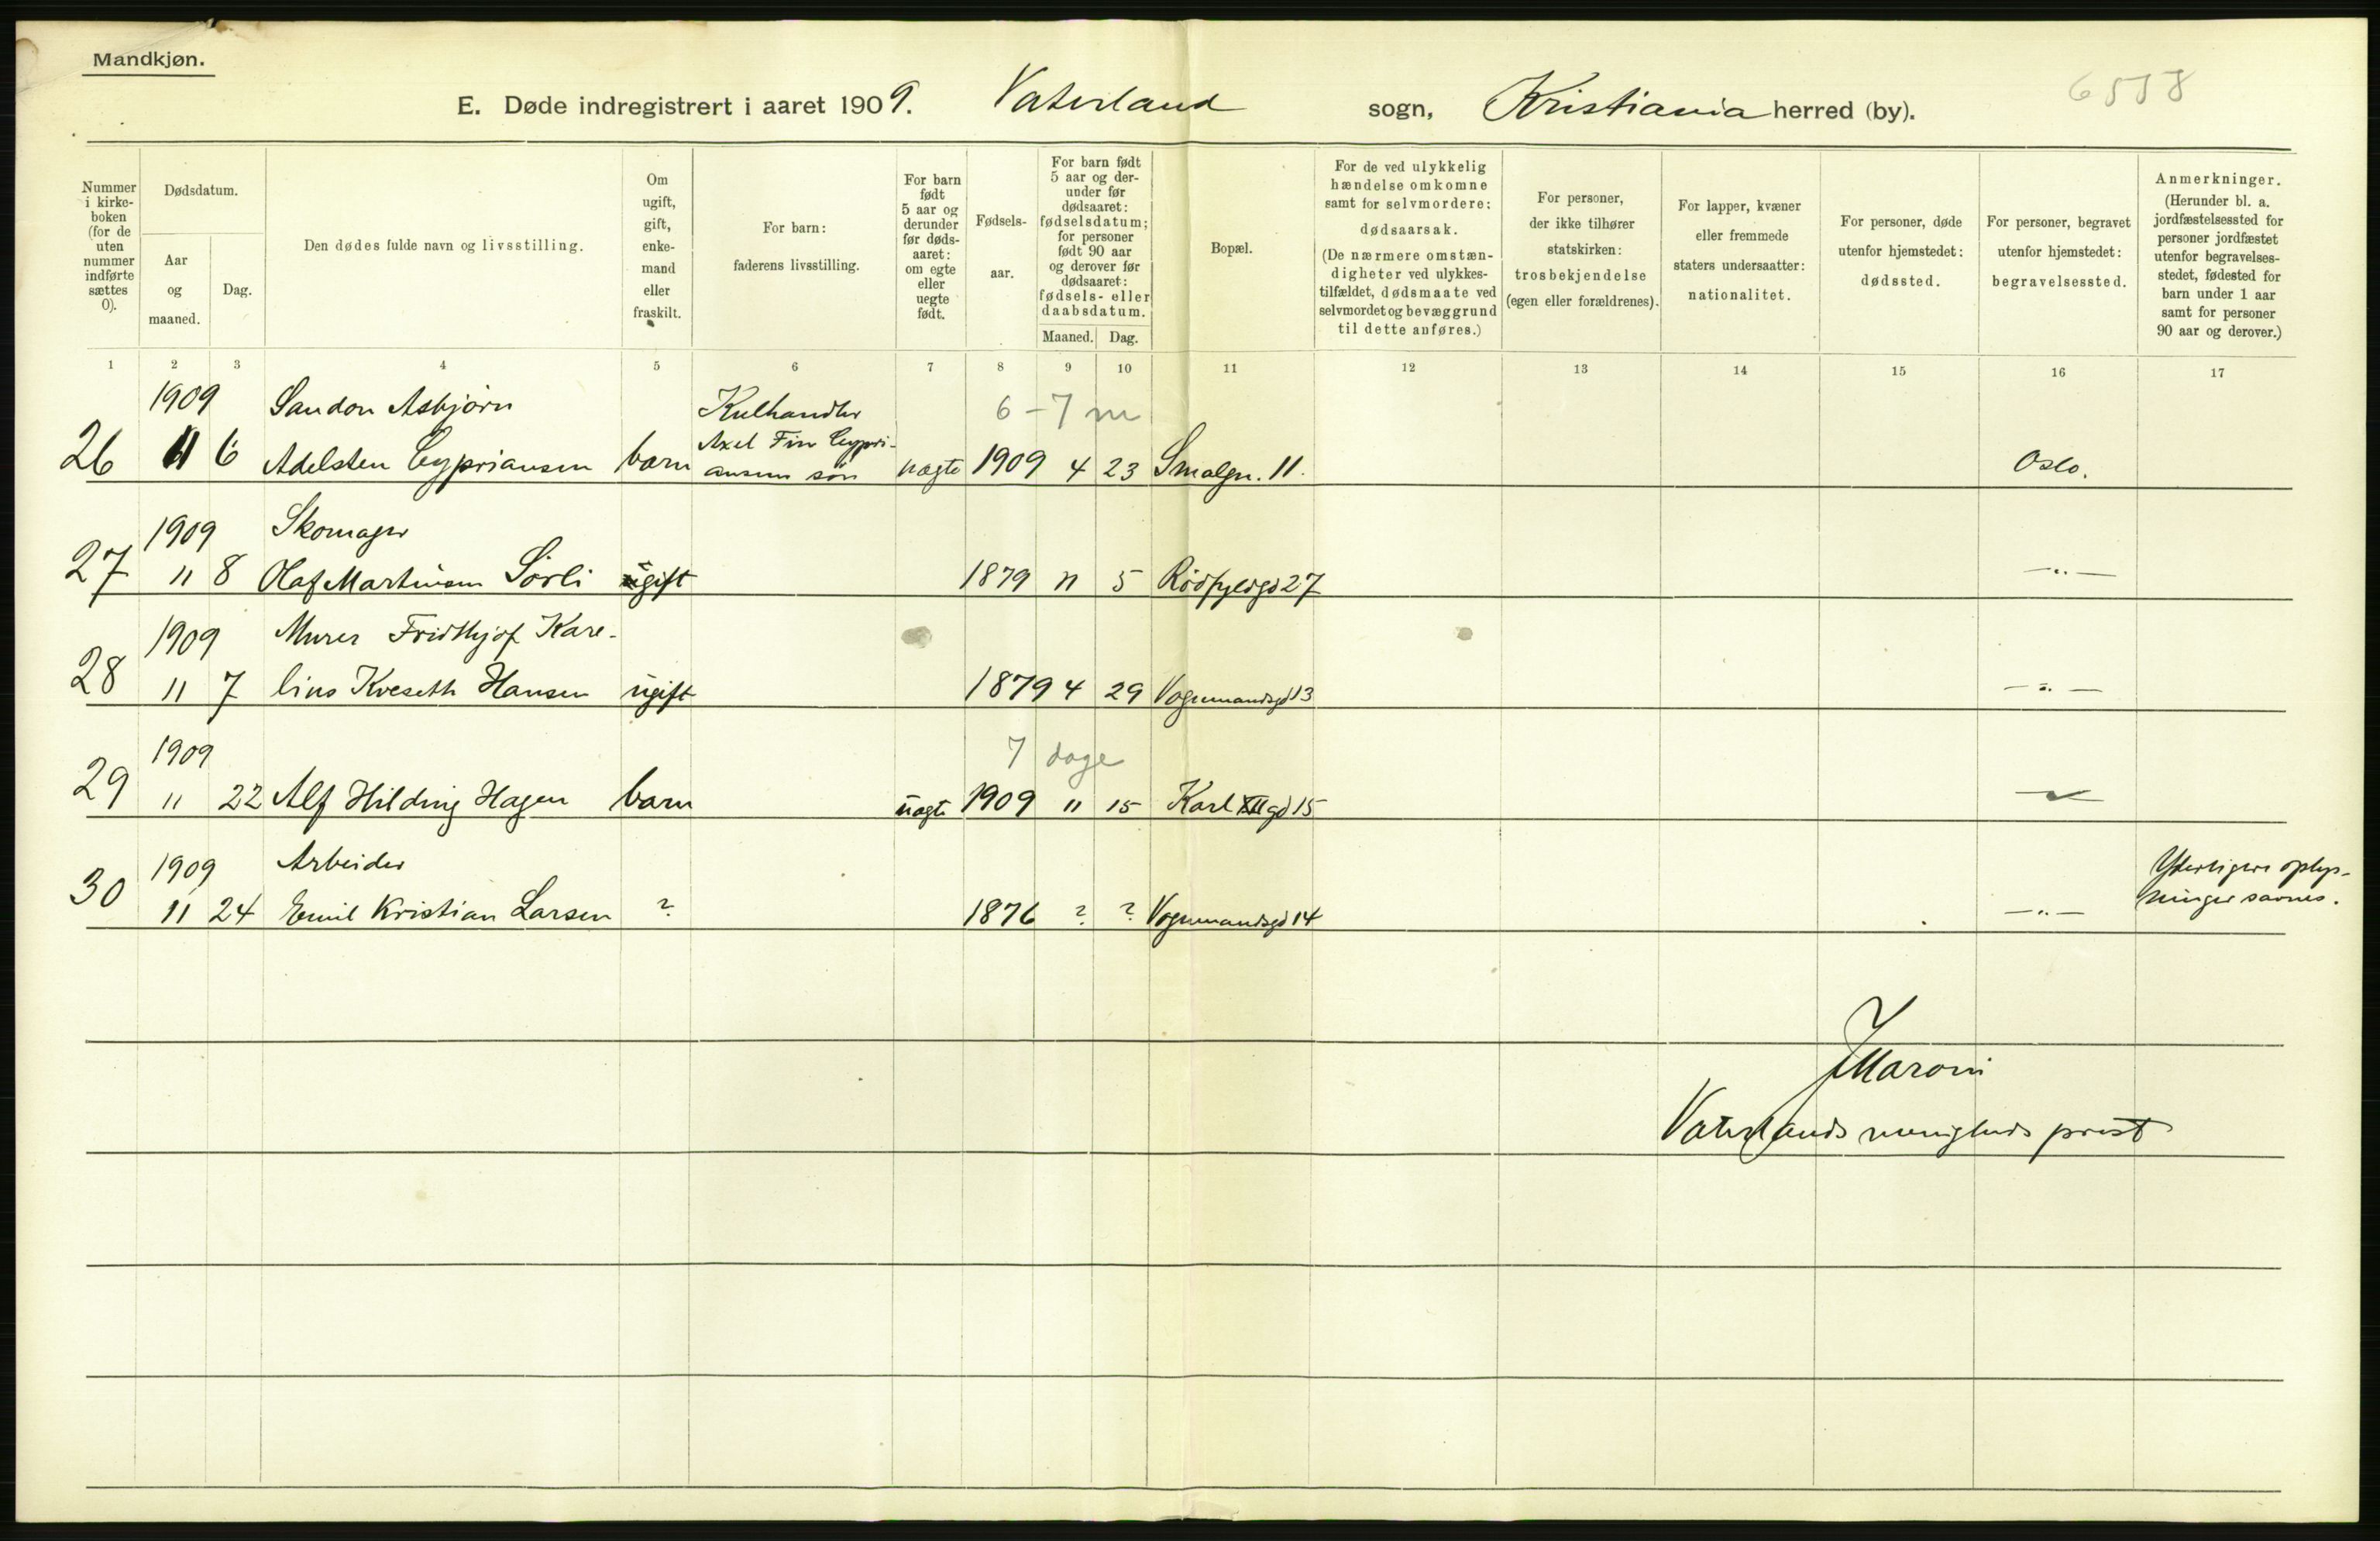 Mandkjøn.
E. Døde indregistrert i aaret 1909. Vaterland sogn, Kristiania herred (by).
6558
Nummer i kirke- boken (for de uten nummer indførte sættes 0).
Dødsdatum.
Aar og maaned.
Dag.
Den dødes fulde navn og livsstilling.
Om ugift, gift, enke- mand eller fraskilt.
For barn: faderens livsstilling.
For barn født 5 aar og derunder før døds- aaret: om egte eller uegte født.
Fødsels- aar.
For barn født 5 aar og der- under før dødsaaret: fødselsdatum; for personer født 90 aar og derover før dødsaaret: fødsels- eller daabsdatum.
Maaned. Dag.
Bopæl.
For de ved ulykkelig hændelse omkomne samt for selvmordere: dødsaarsak. (De nærmere omstæn- digheter ved ulykkes- tilfældet, dødsmaate ved selvmordet og bevæggrund til dette anføres.)
For personer, der ikke tilhører statskirken: trosbekjendelse (egen eller forældrenes).
For lapper, kvæner eller fremmede staters undersaatter: nationalitet.
For personer, døde utenfor hjemstedet: dødssted.
For personer, begravet utenfor hjemstedet: begravelsessted.
Anmerkninger. (Herunder bl. a. jordfæstelsessted for personer jordfæstet utenfor begravelses- stedet, fødested for barn under 1 aar samt for personer 90 aar og derover.)
1 2 3 4 5 6 7 8 9 10 11 12 13 14 15 16 17
1909 Sandon Asbjørn Kulhandler 6-7 m
Axel Finn Cypri-
26 11 6 Adelsten Cypriansen barn ansens søn uægte 1909 4 23 Smalgn. 11. Oslo.
1909 Skomager
27 11 8 Olaf Martinsen Sörli ugift 1879 11 5 Rödfyldgd 27 —"—
1909 Murer Fridthjof Kare-
28 11 7 lius Kveseth Hansen ugift 1879 4 29 Vognmandsgd 13 —"—
1909 7 dage
29 11 22 Alf Hilding Hagen barn uægte 1909 11 15 Karl XII gd 15 —"—
1909 Arbeider Yderligere oplys-
30 11 24 Emil Kristian Larsen ? 1876 ? ? Vognmandsgd 14 —"— ninger savnes.
J Maroni
Vaterlands menigheds prest